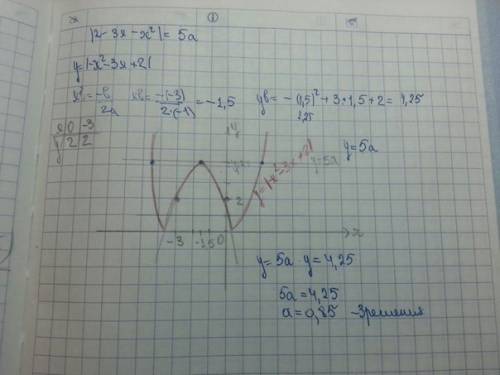 |2-3x-x²| = 5a
y=|-x²-3x+2|
xв = -в/2a xв = -(-3)/2·(-1) = -1,5 yв = -(1,5)² + 3·1,5+2 = 4,25
2,25
x 0 -3
y 2 2
y
y=5a
y=5a
y=|-x²-3x+2|
2
-3 -1,5 0 x
y=5a y=4,25
5a=4,25
a=0,85 -3решения